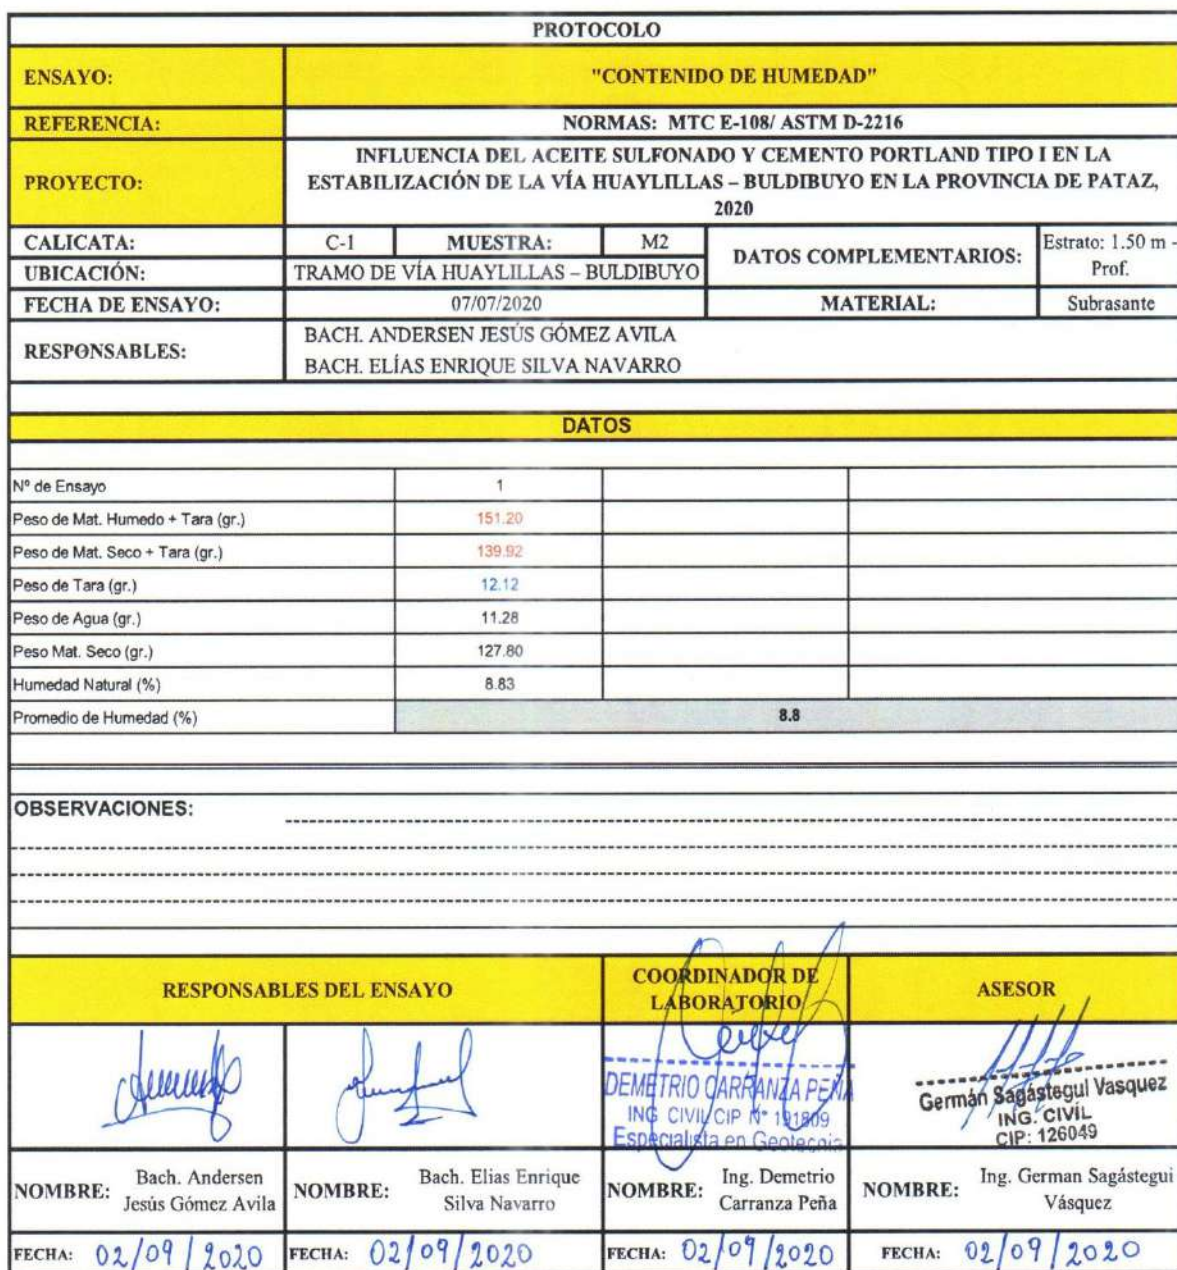 PROTOCOLO
ENSAYO: "CONTENIDO DE HUMEDAD"
REFERENCIA: NORMAS: MTC E-108/ ASTM D-2216
PROYECTO: INFLUENCIA DEL ACEITE SULFONADO Y CEMENTO PORTLAND TIPO I EN LA
ESTABILIZACIÓN DE LA VÍA HUAYLILLAS – BULDIBUYO EN LA PROVINCIA DE PATAZ,
2020
CALICATA: C-1 MUESTRA: M2 DATOS COMPLEMENTARIOS: Estrato: 1.50 m -
Prof.
UBICACIÓN: TRAMO DE VÍA HUAYLILLAS – BULDIBUYO
FECHA DE ENSAYO: 07/07/2020 MATERIAL: Subrasante
RESPONSABLES: BACH. ANDERSEN JESÚS GÓMEZ AVILA
BACH. ELÍAS ENRIQUE SILVA NAVARRO
DATOS
Nº de Ensayo 1
Peso de Mat. Humedo + Tara (gr.) 151.20
Peso de Mat. Seco + Tara (gr.) 139.92
Peso de Tara (gr.) 12.12
Peso de Agua (gr.) 11.28
Peso Mat. Seco (gr.) 127.80
Humedad Natural (%) 8.83
Promedio de Humedad (%) 8.8
OBSERVACIONES:
RESPONSABLES DEL ENSAYO
COORDINADOR DE
LABORATORIO
ASESOR
DEMETRIO CARRANZA PEÑA
ING. CIVIL CIP N° 191809
Especialista en Geotecnia
Germán Sagástegui Vasquez
ING. CIVIL
CIP: 126049
NOMBRE: Bach. Andersen
Jesús Gómez Avila
NOMBRE: Bach. Elias Enrique
Silva Navarro
NOMBRE: Ing. Demetrio
Carranza Peña
NOMBRE: Ing. German Sagástegui
Vásquez
FECHA: 02/09/2020
FECHA: 02/09/2020
FECHA: 02/09/2020
FECHA: 02/09/2020